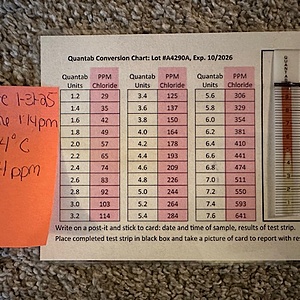 Quantab Conversion Chart: Lot #A4290A, Exp. 10/2026
Quantab Units PPM Chloride Quantab Units PPM Chloride Quantab Units PPM Chloride
1.2 29 3.4 125 5.6 306
1.4 35 3.6 137 5.8 329
1.6 42 3.8 150 6.0 354
1.8 49 4.0 164 6.2 381
2.0 57 4.2 178 6.4 410
2.2 65 4.4 193 6.6 441
2.4 74 4.6 209 6.8 474
2.6 83 4.8 226 7.0 511
2.8 92 5.0 244 7.2 550
3.0 103 5.2 264 7.4 593
3.2 114 5.4 284 7.6 641
Write on a post-it and stick to card: date and time of sample, results of test strip.
Place completed test strip in black box and take a picture of card to report with res
1-21-25
1:14pm
4°C
ppm
QUANTAB